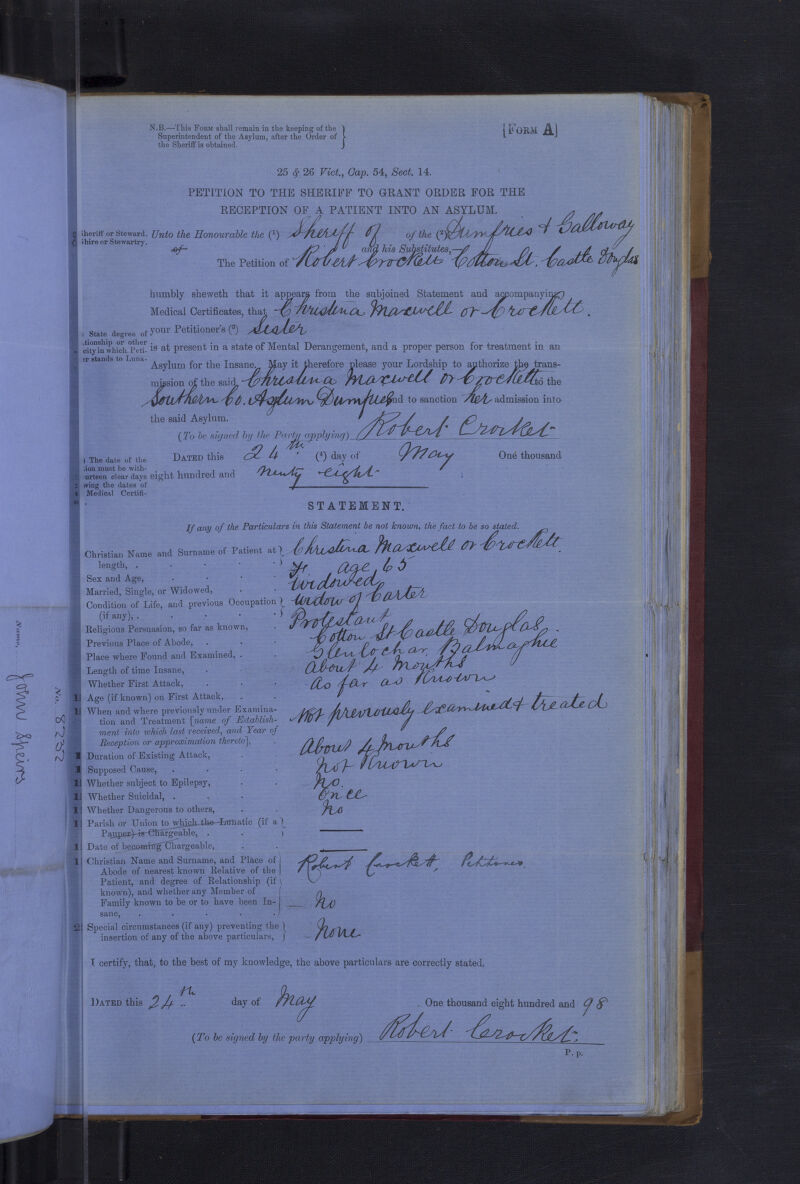 N.B.—This Form shall remain in the keeping of the
Superintendent of the Asylum, after the Order of
the Sheriff is obtained.
[Form A]
25 & 26 Vict., Cap. 54, Sect. 14.
PETITION TO THE SHERIFF TO GRANT ORDER FOR THE
RECEPTION OF A PATIENT INTO AN ASYLUM.
Sheriff or Steward.
Shire or Stewartry.
Unto the Honourable the (1) Sheriff of of the (2) Dumfries & Galloway
of and his Substitutes,—
The Petition of Robert Crockett Cotton St. Castle Douglas
humbly sheweth that it appears from the subjoined Statement and accompanying
Medical Certificates, that Christina Maxwell or Crockett.
State degree of
tionship or other
city in which Peti-
er stands to Luna-
your Petitioner's (3) Sister
is at present in a state of Mental Derangement, and a proper person for treatment in an
Asylum for the Insane. May it therefore please your Lordship to authorize the trans-
mission of the said Christina Maxwell or Crockett to the
Southern Co. Asylum Dumfries and to sanction her admission into
the said Asylum.
(To be signed by the Party applying) Robert Crocket
The date of the
ion must be with-
urteen clear days
wing the dates of
Medical Certifi-
Dated this 24th (4) day of May One thousand
eight hundred and ninty eight
STATEMENT.
If any of the Particulars in this Statement be not known, the fact to be so stated.
Christian Name and Surname of Patient at
length, . Christina Maxwell or Crockett.
Sex and Age, F. age 65
Married, Single, or Widowed, Widowed
Condition of Life, and previous Occupation
(if any), . Widow of Carter
Religious Persuasion, so far as known, Protestant
Previous Place of Abode, Cotton St Castle Douglas.
Place where Found and Examined, Glenlochar, Balmaghie
Length of time Insane, About 4 Months
Whether First Attack, as far as Known
Age (if known) on First Attack,
When and where previously under Examina-
tion and Treatment [name of Establish-
ment into which last received, and Year of
Reception or approximation thereto], Not previously examined & treated
Duration of Existing Attack, About 4 Months
Supposed Cause, Not Known
Whether subject to Epilepsy, No.
Whether Suicidal, Once
Whether Dangerous to others, No
Parish or Union to which the Lunatic (if a
Pauper) is Chargeable, —
Date of becoming Chargeable, —
Christian Name and Surname, and Place of
Abode of nearest known Relative of the
Patient, and degree of Relationship (if
known), and whether any Member of
Family known to be or to have been In-
sane, Robert Crockett, Petitioner
No
Special circumstances (if any) preventing the
insertion of any of the above particulars, None
I certify, that, to the best of my knowledge, the above particulars are correctly stated.
Dated this 24th day of May One thousand eight hundred and 98
(To be signed by the party applying) Robert Crocket.
P. p.
Name, John Speirs
No. 8232